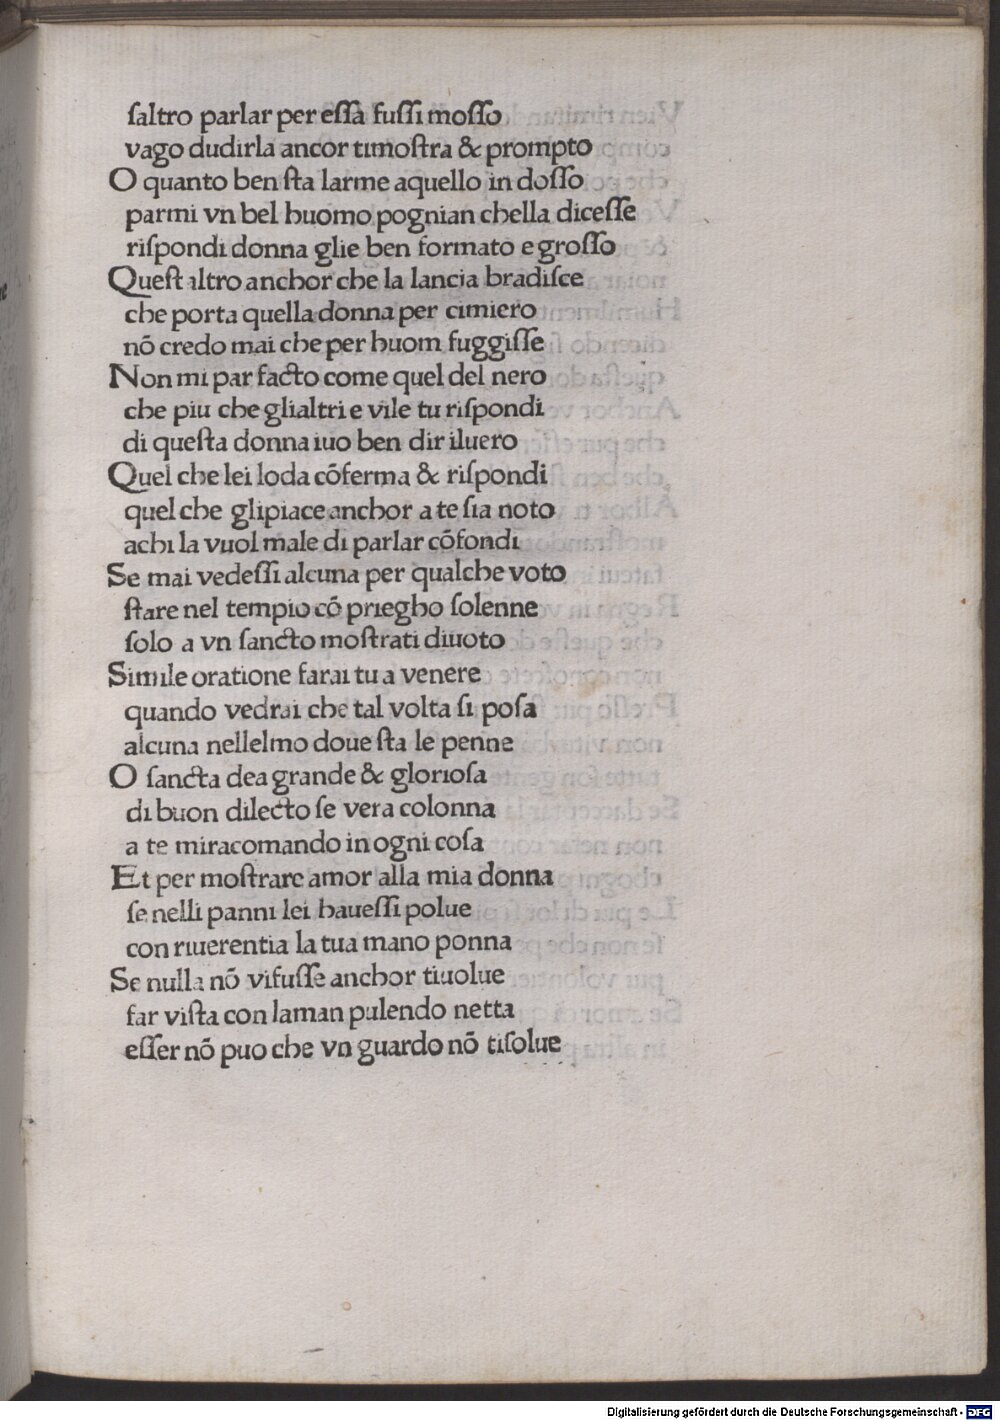 ſaltro parlar per eſſa fuſſi moſſo
vago dudirla ancor timoſtra & prompto
O quanto ben ſta larme aquello in doſſo
parmi vn bel huomo pognian chella diceſſe
riſpondi donna glie ben formato e groſſo
Queſt altro anchor che la lancia bradiſce
che porta quella donna per cimiero
nō credo mai che per huom fuggiſſe
Non mi par facto come quel del nero
che piu che glialtri e vile tu riſpondi
di queſta donna iuo ben dir iluero
Quel che lei loda cōferma & riſpondi
quel che glipiace anchor a te ſia noto
achi la vuol male di parlar cōfondi
Se mai vedeſſi alcuna per qualche voto
ſtare nel tempio cō priegho ſolenne
ſolo a vn ſancto moſtrati diuoto
Simile oratione farai tu a venere
quando vedrai che tal volta ſi poſa
alcuna nellelmo doue ſta le penne
O ſancta dea grande & glorioſa
di buon dilecto ſe vera colonna
a te miracomando in ogni coſa
Et per moſtrare amor alla mia donna
ſe nelli panni lei haueſſi polue
con riuerentia la tua mano ponna
Se nulla nō vifuſſe anchor tiuolue
far viſta con laman pulendo netta
eſſer nō puo che vn guardo nō tiſolue
Digitalisierung gefördert durch die Deutsche Forschungsgemeinschaft - DFG